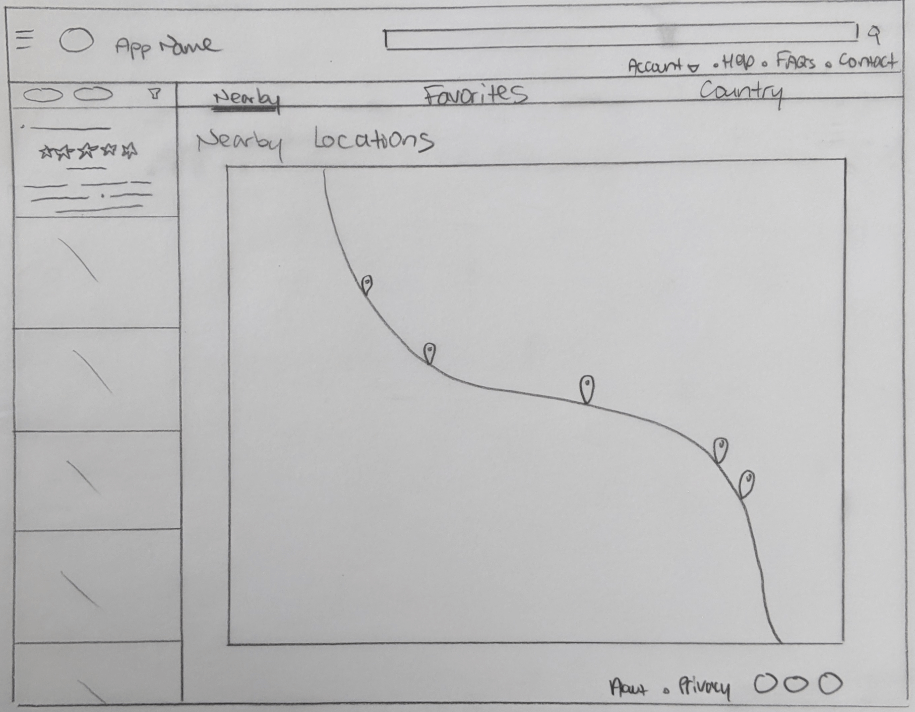 App Name
Account . Help . FAQs . Contact
Nearby Favorites Country
Nearby Locations
About . Privacy